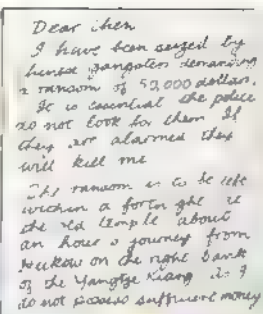 Dear chen
I have been seized by
gangsters demanding
a ransom of 50,000 dollars.
It is essential the police
do not look for them If
they are alarmed they
will kill me
The ransom is to be left
within a fortnight at
the old temple about
an hour's journey from
Hukow on the right bank
of the Yangtze Kiang As I
do not possess sufficient money